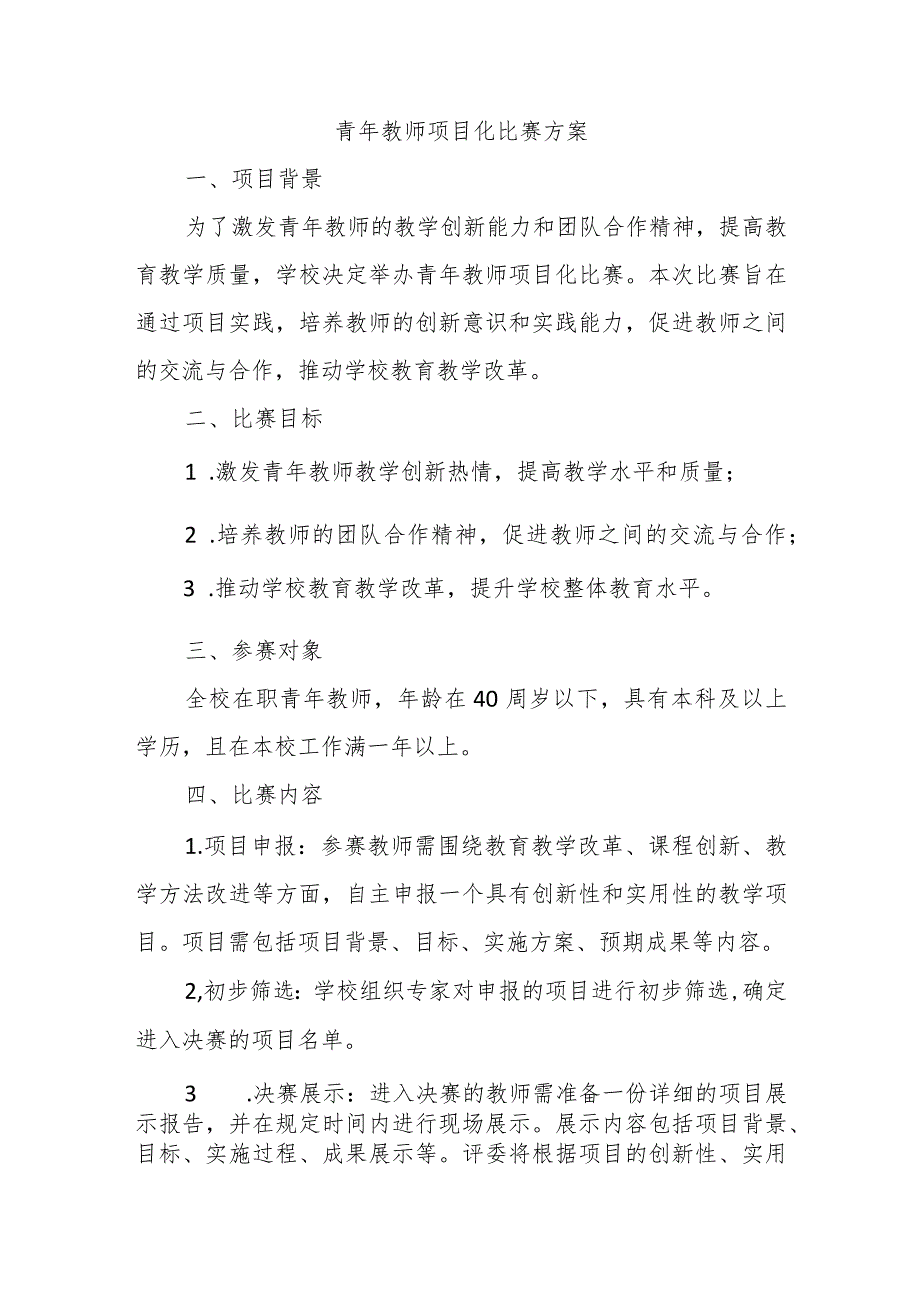 青年教师项目化比赛方案
一、项目背景
为了激发青年教师的教学创新能力和团队合作精神，提高教
育教学质量，学校决定举办青年教师项目化比赛。本次比赛旨在
通过项目实践，培养教师的创新意识和实践能力，促进教师之间
的交流与合作，推动学校教育教学改革。
二、比赛目标
1 .激发青年教师教学创新热情，提高教学水平和质量；
2 .培养教师的团队合作精神，促进教师之间的交流与合作；
3 .推动学校教育教学改革，提升学校整体教育水平。
三、参赛对象
全校在职青年教师，年龄在 40 周岁以下，具有本科及以上
学历，且在本校工作满一年以上。
四、比赛内容
1.项目申报：参赛教师需围绕教育教学改革、课程创新、教
学方法改进等方面，自主申报一个具有创新性和实用性的教学项
目。项目需包括项目背景、目标、实施方案、预期成果等内容。
2,初步筛选：学校组织专家对申报的项目进行初步筛选,确定
进入决赛的项目名单。
3 .决赛展示：进入决赛的教师需准备一份详细的项目展
示报告，并在规定时间内进行现场展示。展示内容包括项目背景、
目标、实施过程、成果展示等。评委将根据项目的创新性、实用